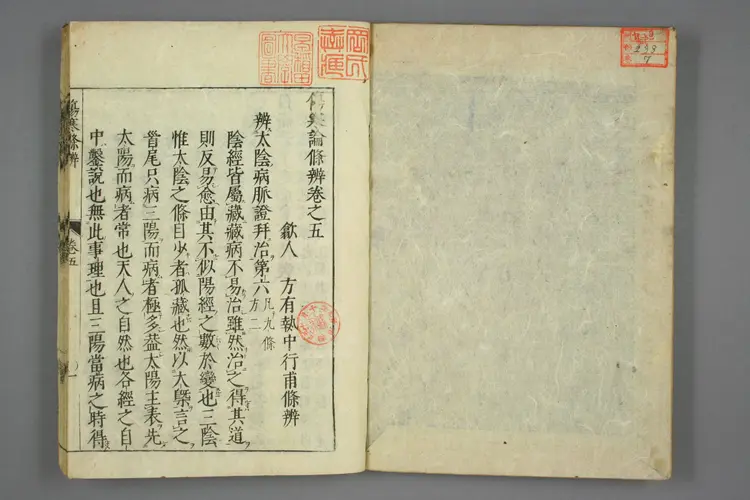 傷寒論條辨卷之五
歙人　方有執中行甫條辨
辨太陰病脉證幷治第六
凡九條
方二
陰經皆屬藏藏病不易治雖然治之得其道
則反易愈由其不似陽經之數於變也三陰
惟太陰之條目少者孤藏也然以大槩言之
首尾只病三陽而病者極多葢太陽主表先
太陽而病者常也天人之自然也各經之自
中鑿說也無此事理也且三陽當病之時得
傷寒條辨
卷五
一